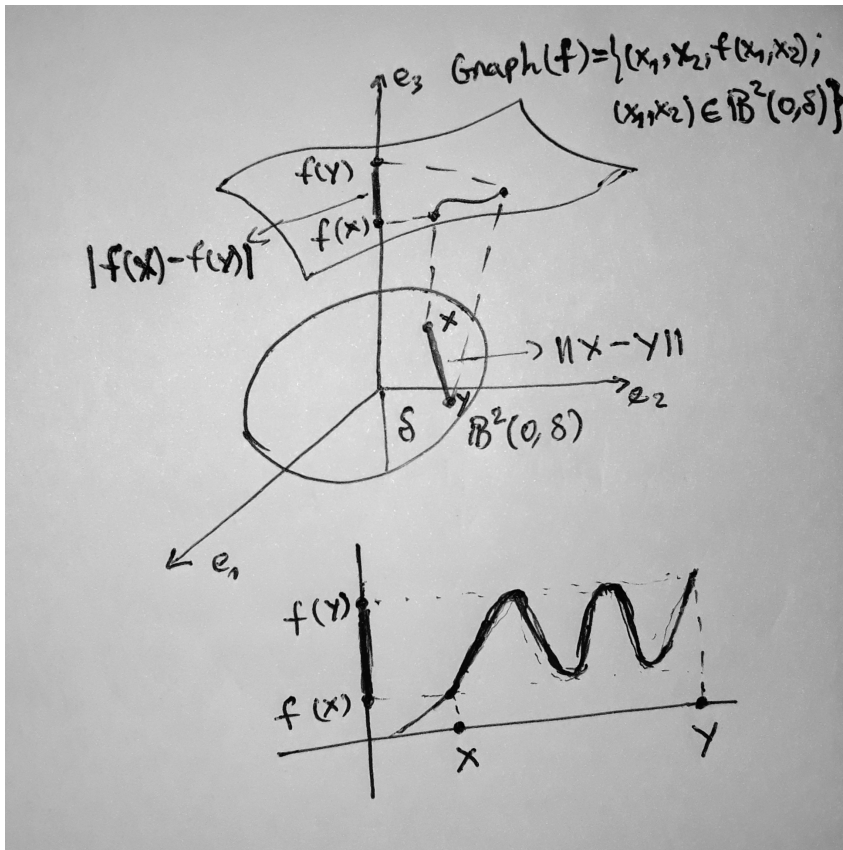 e₃ Graph(f)={(x₁,x₂,f(x₁,x₂);
(x₁,x₂) ∈ B²(0,δ)}
f(y)
f(x)
|f(x)-f(y)|
x
||x-y||
y
e₂
δ B²(0,δ)
e₁
f(y)
f(x)
x
y